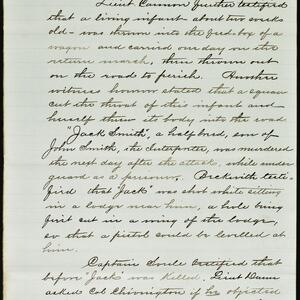 Lieut Cannon further testified
that a living infant about two weeks
old - was thrown into the feed box of a
wagon and carried one day on the
return march, then thrown out
on the road to perish. Another
witness however stated that a squaw
cut the throat of this infant and
herself threw its body into the road
"Jack Smith", a half bred, son of
John Smith, the Interpreter, was murdered
the next day after the attack, while under
guard as a prisoner. Beckwith testi-
fied that "Jack" was shot while sitting
in a lodge near him, a hole being
first cut in a wing of the lodge,
so that a pistol could be levelled at
him.
Captain Soule testified that
before "Jack" was killed, Lieut Dunn
asked Col Chivington if he objected